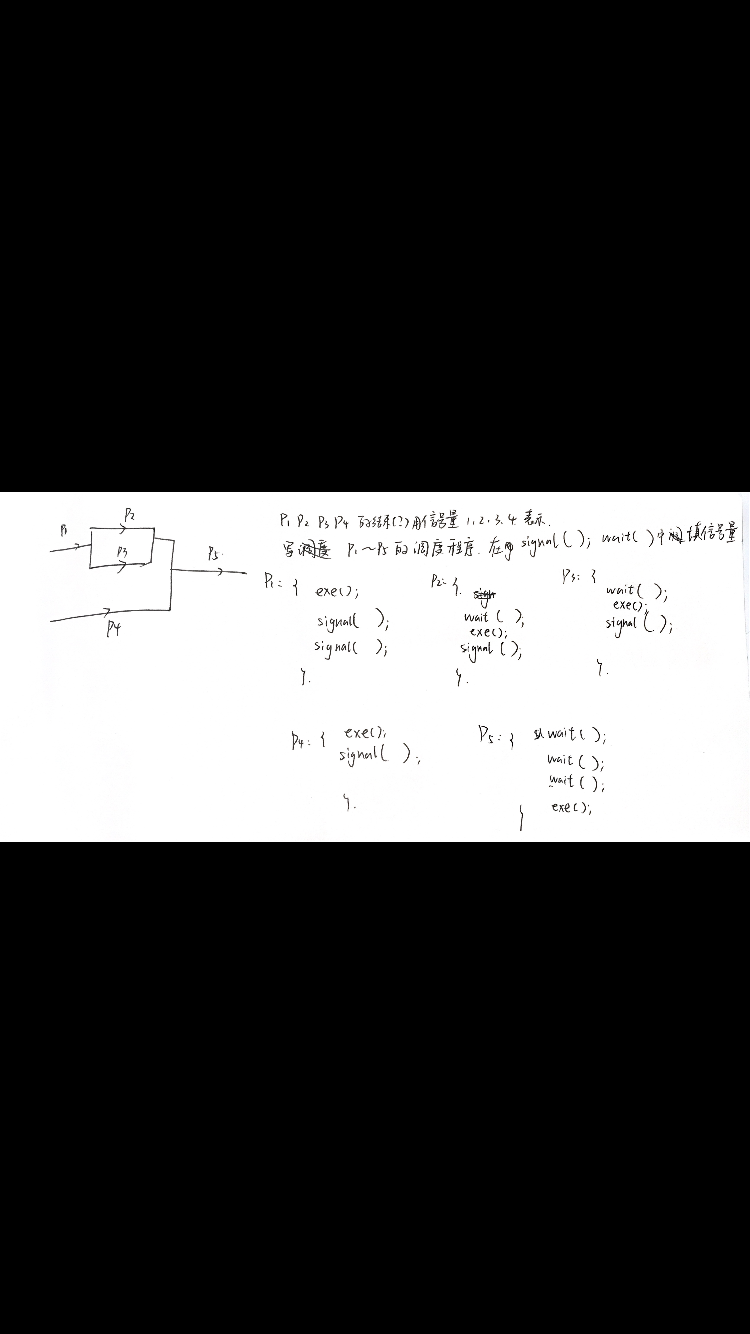 P1 P2 P3 P4 的结束(?)用信号量 1.2.3.4 表示.
写 P1~P5 的调度程序. 在 signal( ); wait( )中 填信号量
P1
P2
P3
P4
P5.
P1: { exe();
signal( );
signal( );
}.
P2: {.
wait ( );
exe();
signal ( );
}.
P3: {
wait( );
exe();
signal ( );
}.
P4: { exe();
signal( );
}.
P5: { wait( );
wait ( );
wait ( );
exe();
}